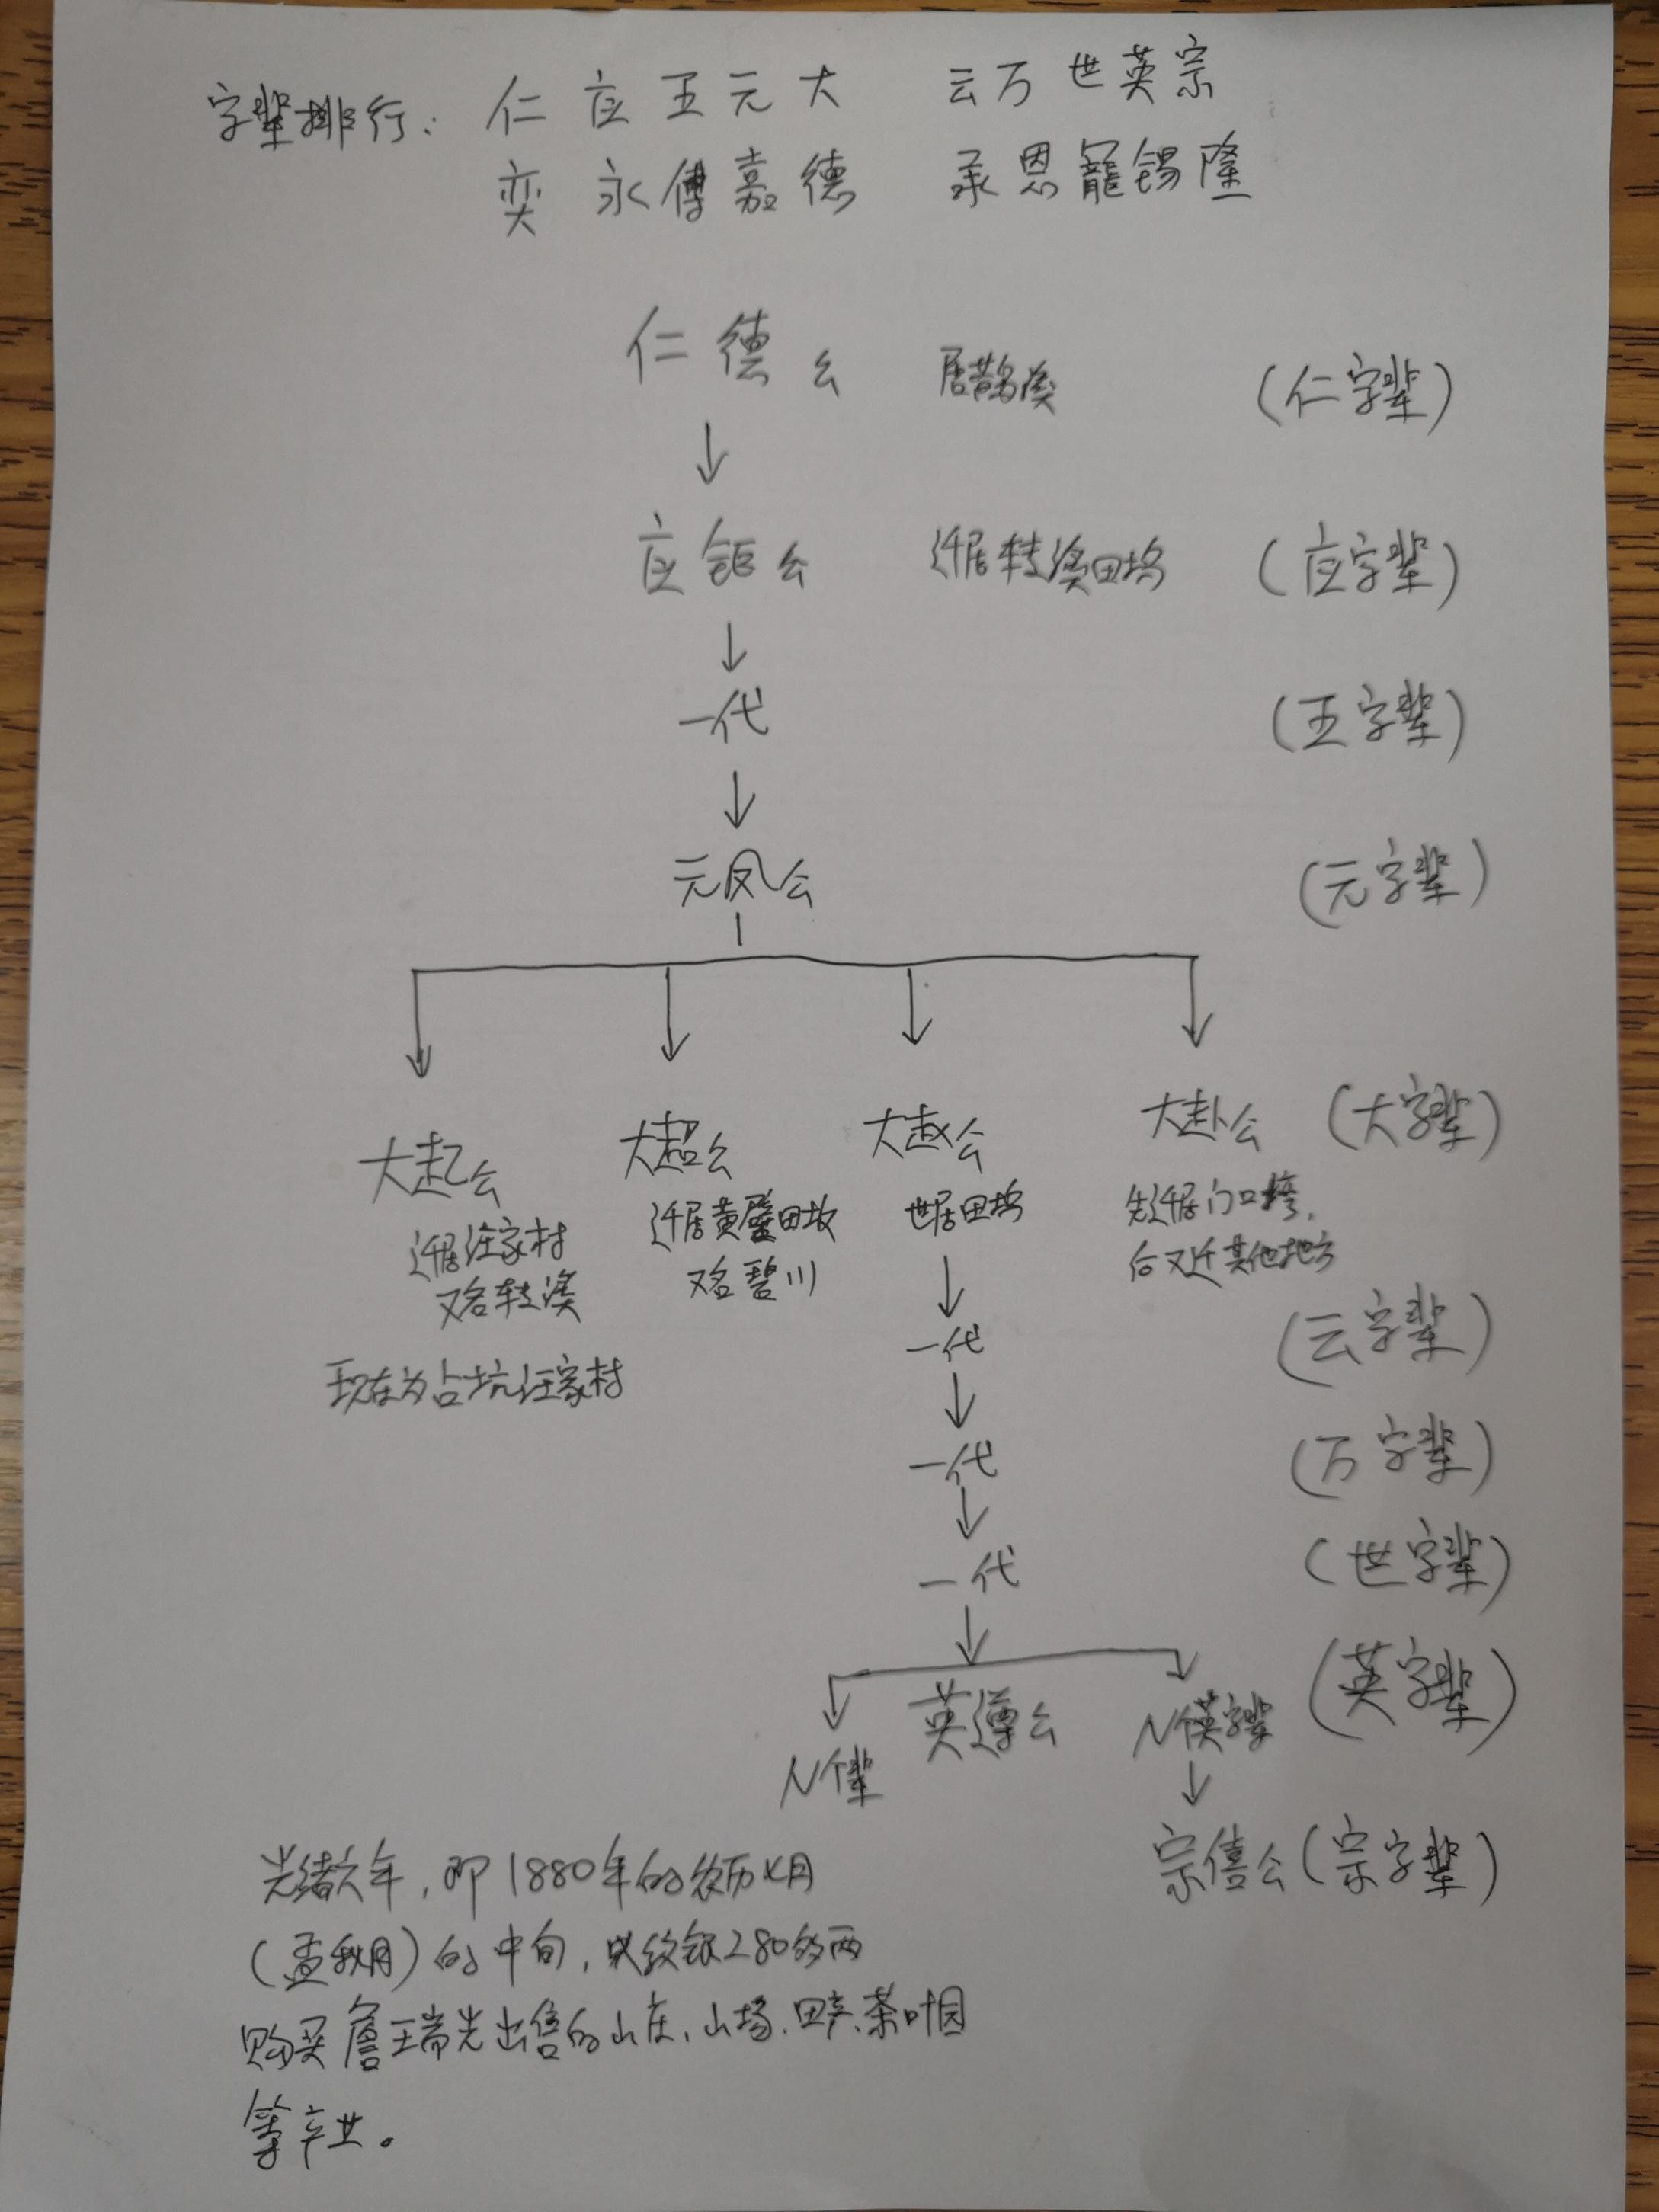 字辈排行: 仁应王元大 云万世英宗
奕永傅嘉德 承恩寵锡隆
仁德公 居 (仁字辈)
应钜公 迁居转溪田坞 (应字辈)
一代 (王字辈)
元凤公 (元字辈)
大起公 大超公 大赵公 大赴公 (大字辈)
迁居汪家村 迁居黄壁田坎 世居田坞 先迁居门口塆,
又名转溪 又名碧川 后又迁其他地方
现在为占坑汪家村
一代 (云字辈)
一代 (万字辈)
一代 (世字辈)
N个辈 英遵公 N个英字辈 (英字辈)
宗僖公 (宗字辈)
光绪六年,即1880年的农历七月
(孟秋月)的中旬,以纹银280多两
购买詹王瑞光出售的山庄、山场、田产、茶叶园
等产业。